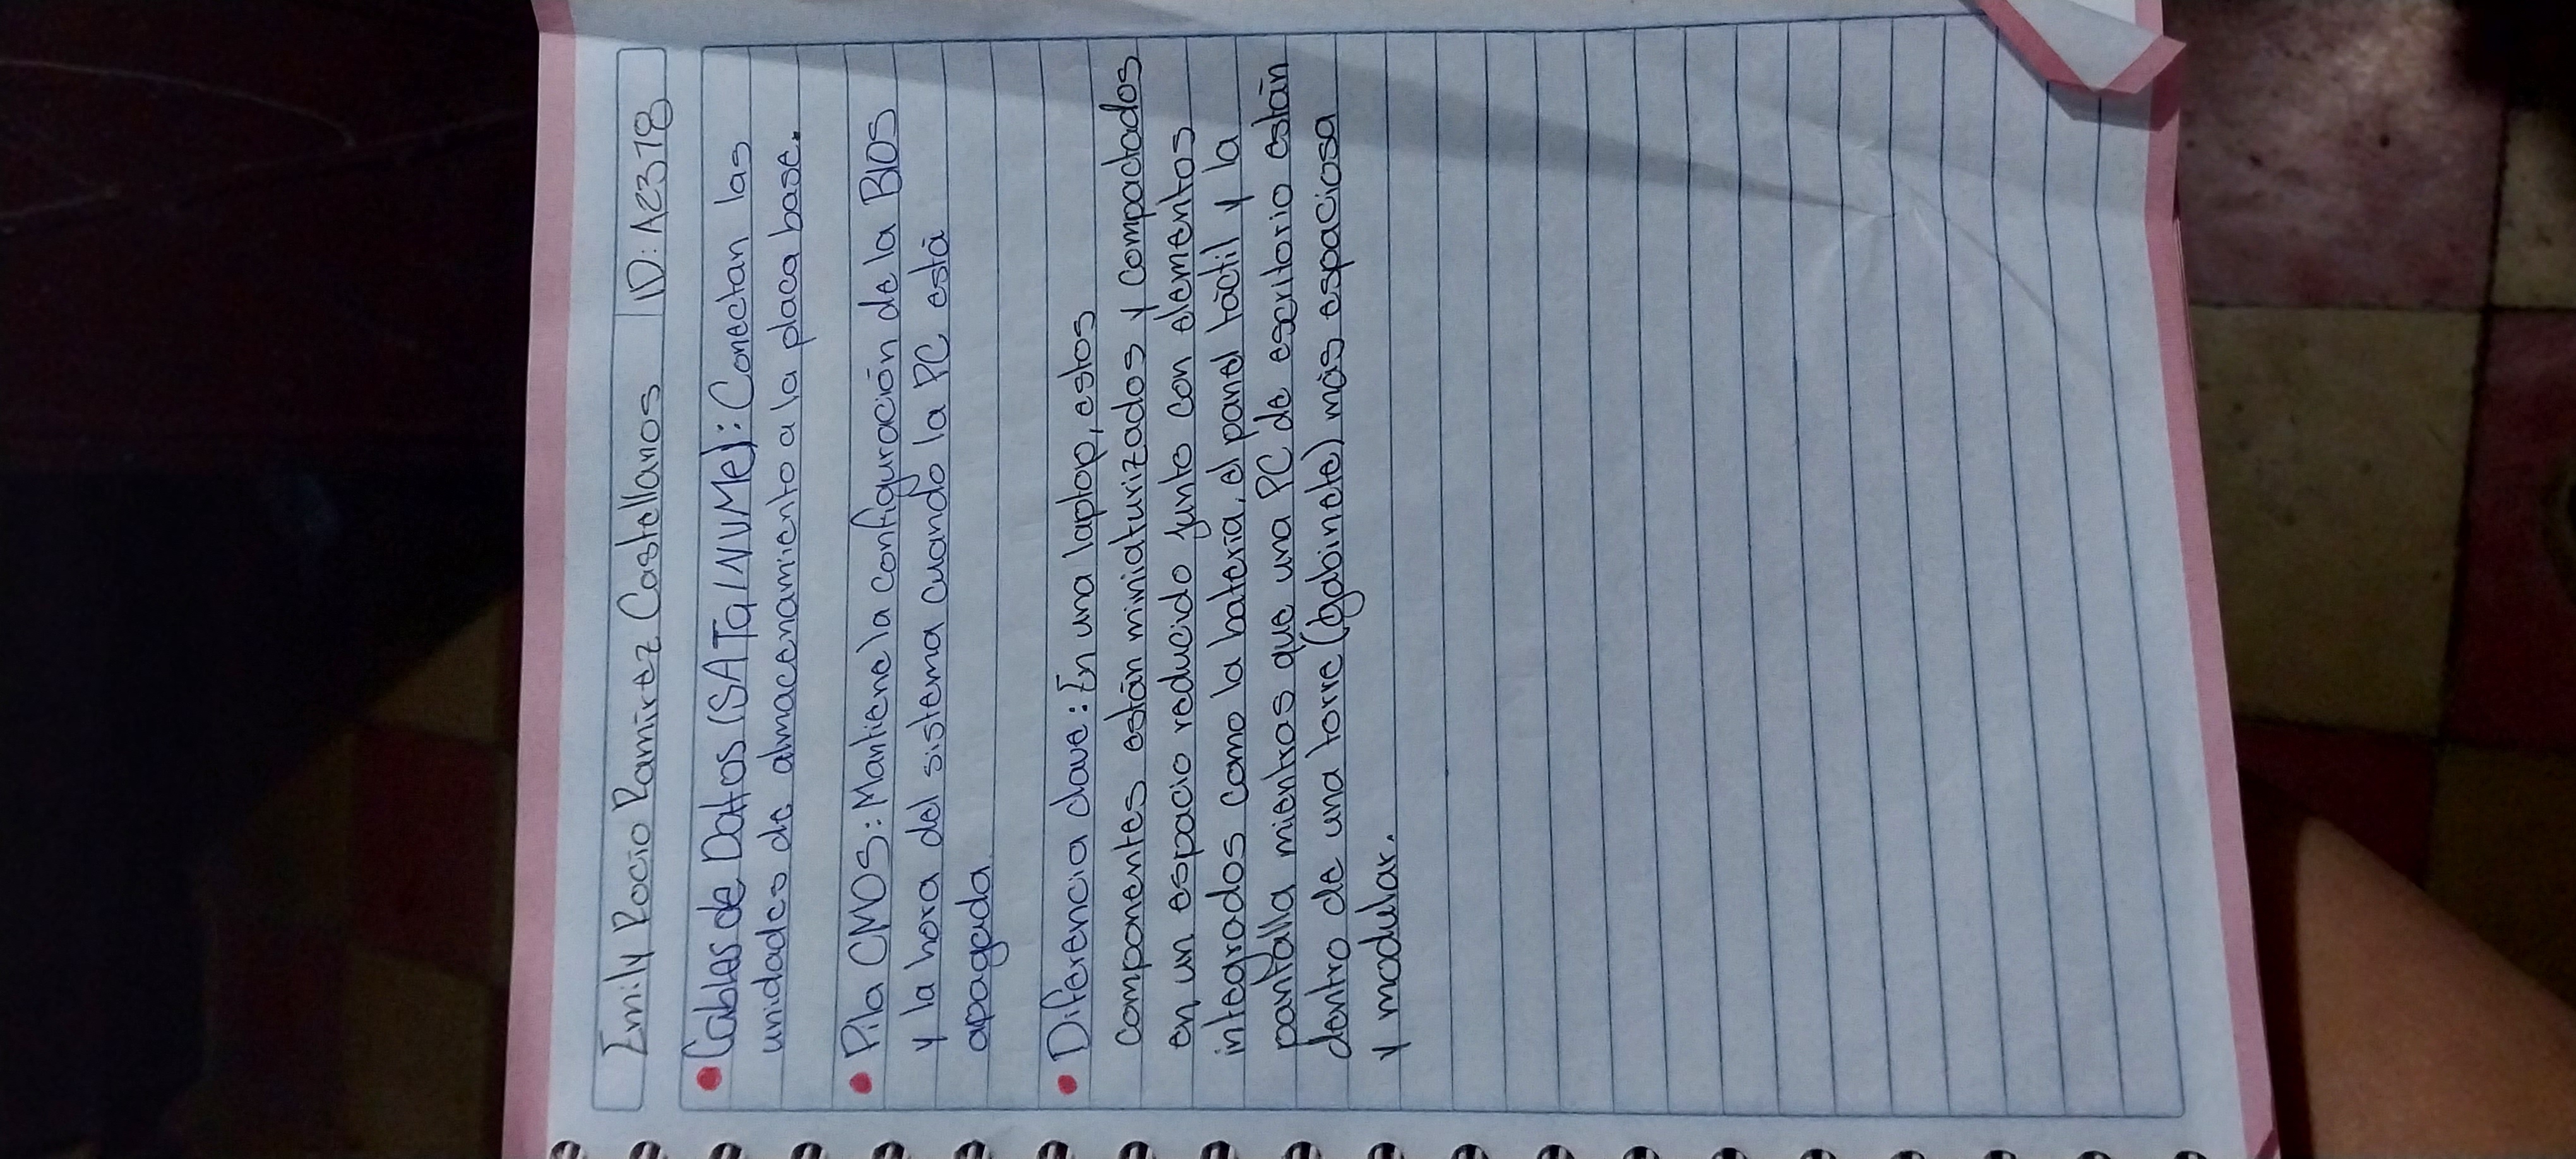 Emily Rocio Ramirez Castellanos | ID: A2378
• Cables de Dattos (SATa/NVMe): Conectan las
unidades de almacenamiento a la placa base.
• Pila CMOS: Mantiene la configuración de la BIOS
y la hora del sistema cuando la PC está
apagada.
• Diferencia clave: En una laptop, estos
componentes están miniaturizados y compactados
en un espacio reducido junto con elementos
integrados como la batería, el panel táctil y la
pantalla mientras que una PC de escritorio están
dentro de una torre (gabinete) más espaciosa
y modular.